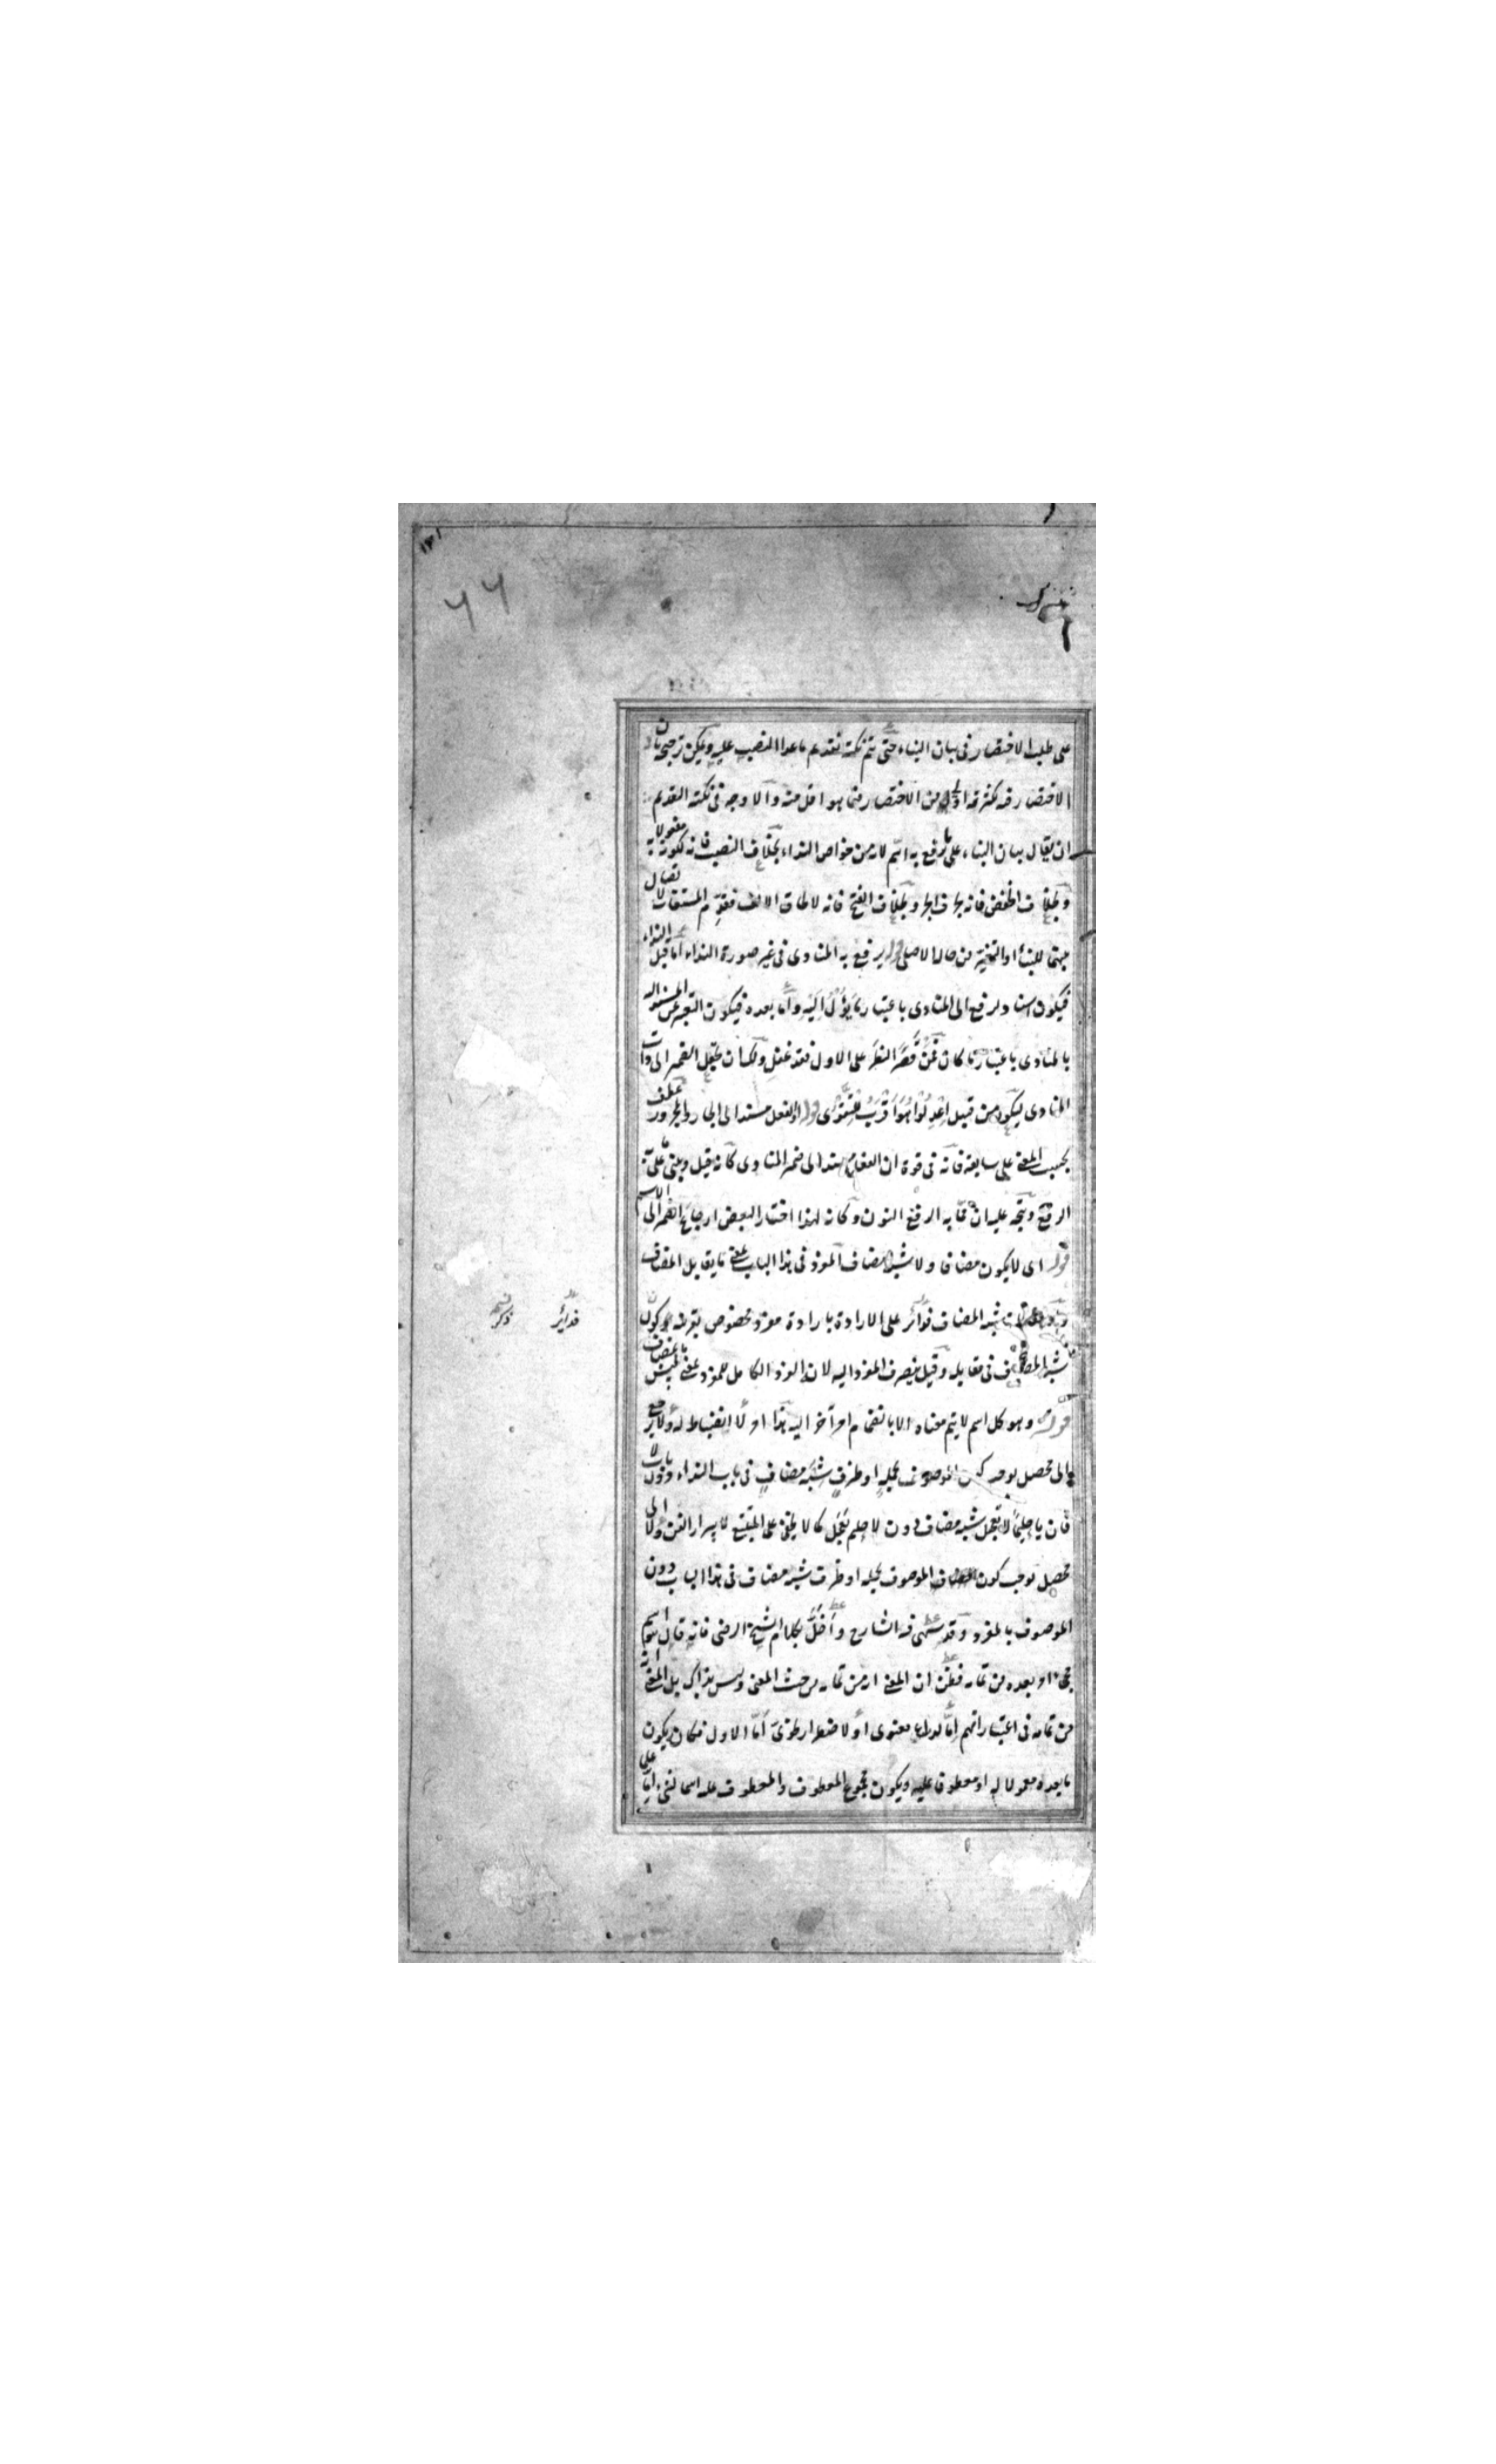 على طلب الاختصار فى بيان البناء حتى يتم نكتة تقديم ماعدا النصب عليه ويمكن ترجيحه بان
الاختصار فيه كثرته اولى من الاختصار فيما هو اقل منه والاوجه فى نكتة التقديم
ان يقال بيان البناء على ما يرفع به اهم لانه من خواص النداء بخلاف النصب فانه لكونه مفعولا به
وبخلاف الخفض فانه بحرف الجر وبخلاف الفتح فانه لالحاق الالف فقدم
من حاله الاصلى قوله يرفع به المنادى فى غير صورة النداء اما قبل النداء
فيكون اسناد يرفع الى المنادى باعتبار ما يؤل اليه واما بعده فيكون التعبير عن المسند اليه
بالمنادى باعتبار ما كان فمن قصر النظر على الاول فقد غفل ولك ان تجعل الضمير الى ذات
المنادى ليكون من قبيل اعدلوا هو اقرب للتقوى قوله او الفعل مسند الى الجار والمجرور عطف
بحسب المعنى على سابقه فانه فى قوة ان الفعل مسند الى ضمير المنادى كانه قيل ويبنى على ما
الرفع ويتجه عليه ان ما به الرفع النون وكانه لهذا اختار البعض ارجاع الضمير الى الاسم
قوله اى لا يكون مضافا ولا شبه مضاف المفرد فى هذا الباب بمعنى ما يقابل المضاف
شبه المضاف على الارادة بارادة مفرد مخصوص بقرينة كون
شبه المضاف فى مقابله وقيل ينصرف المفرد اليه لان الفرد الكامل للمفرد بمعنى ما ليس بمضاف
قوله وهو كل اسم لا يتم معناه الا بانضمام امر آخر اليه هذا امر لا انضباط له ولا يرجع
الى محصل يوجب كون الموصوف بجملة او ظرف شبه مضاف فى باب النداء دون باب لا
فان يا حليما لا يعجل شبه مضاف دون لا حليم يعجل كما لا يخفى على المتتبع لاسرار الفن ولا الى
محصل يوجب كون الموصوف بجملة او ظرف شبه مضاف فى هذا الباب دون
الموصوف بالمفرد وقد سهى فيه الشارح واخل بكلام الشيخ الرضى فانه قال هو اسم
يجئ امر بعده من تمامه فظن ان المعنى انه من تمامه من حيث المعنى وليس بذاك بل المعنى انه
من تمامه فى اعتباراتهم اما لداع معنوى او لاضطرار لفظى اما الاول فكان يكون
ما بعده معمولا له او معطوفا عليه ويكون مجموع المعطوف والمعطوف عليه اسما لشئ اما على